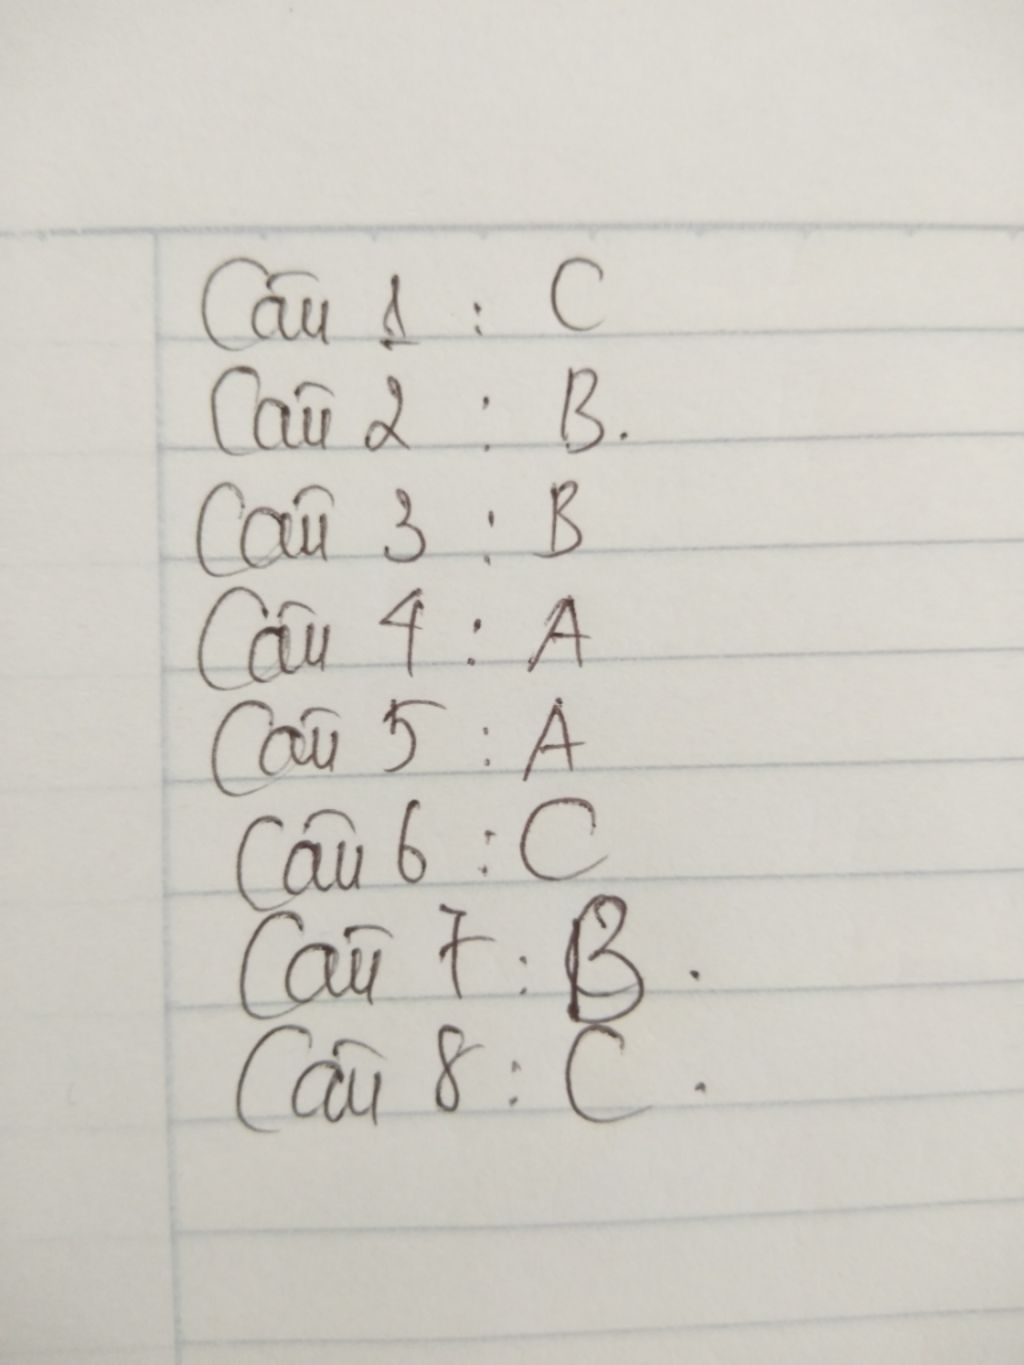 Câu 1 : C
Câu 2 : B.
Câu 3 : B
Câu 4 : A
Câu 5 : A
Câu 6 : C
Câu 7 : B .
Câu 8 : C .